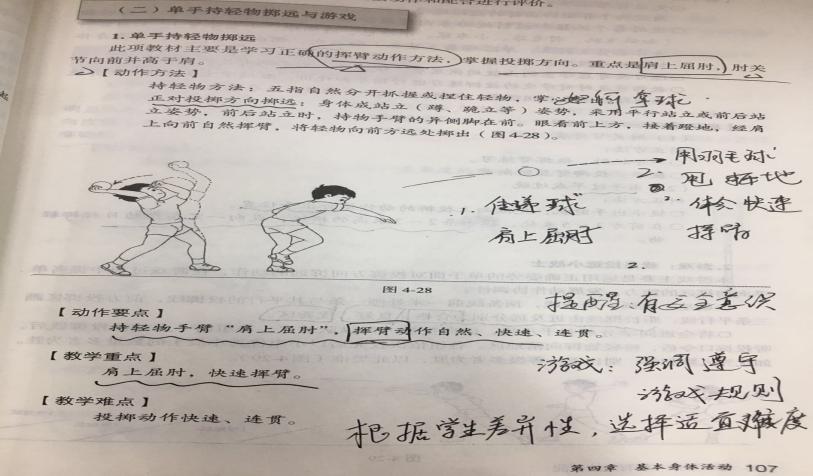 （二）单手持轻物掷远与游戏
1. 单手持轻物掷远
此项教材主要是学习正确的挥臂动作方法，掌握投掷方向。重点是肩上屈肘，肘关
节向前并高于肩。
【动作方法】
持轻物方法：五指自然分开抓握或捏住轻物，掌
正对投掷方向掷远：身体成站立（蹲、跪立等）姿势，采用平行站立或前后站
立姿势，前后站立时，持物手臂的异侧脚在前。眼看前上方，接着蹬地，经肩
上向前自然挥臂，将轻物向前方远处掷出（图4-28）。
如何拿球
用羽毛球
2. 甩 地
体会快速
挥
1. 传递球
肩上屈肘
2.
图 4-28
有这个意识
【动作要点】
持轻物手臂“肩上屈肘”，挥臂动作自然、快速、连贯。
【教学重点】
肩上屈肘，快速挥臂。
游戏：强调遵守
游戏规则
【教学难点】
投掷动作快速、连贯。
根据学生差异性，选择适宜难度
第四章 基本身体活动 107